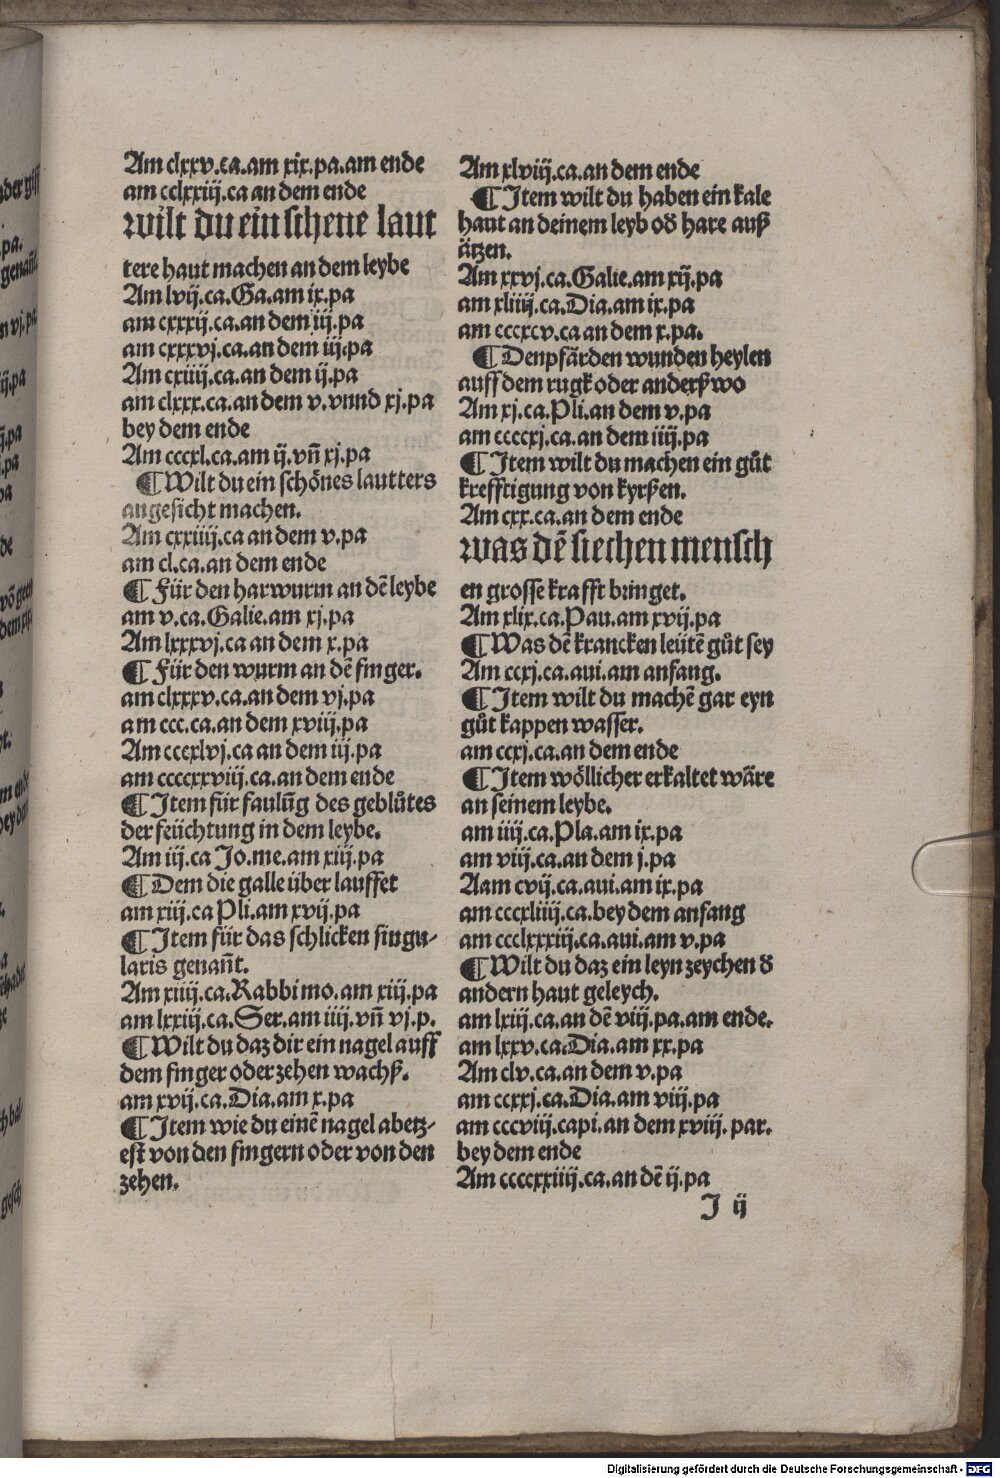 Am clxxv.ca.am xix.pa.am ende
am cclxxiij.ca an dem ende
wilt du ein schene laut
tere haut machen an dem leybe
Am lvij.ca.Ga.am ix.pa
am cxxxij.ca.an dem iij.pa
am cxxxvj.ca.an dem iij.pa
Am cxiiij.ca.an dem ij.pa
am clxxx.ca.an dem v.vnnd xj.pa
bey dem ende
Am cccxl.ca.am ij.vn̄ xj.pa
¶ Wilt du ein schönes lautters
angesicht machen.
Am cxxiiij.ca an dem v.pa
am cl.ca.an dem ende
¶ Für den harwurm an dē leybe
am v.ca.Galie.am xj.pa
Am lxxxvj.ca an dem x.pa
¶ Für den wurm an dē finger.
am clxxxv.ca.an dem vj.pa
am ccc.ca.an dem xviij.pa
Am cccxlvj.ca an dem iij.pa
am ccccxxviij.ca.an dem ende
¶ Item für faulūg des geblůtes
der feüchtung in dem leybe.
Am iij.ca Jo.me.am xiij.pa
¶ Dem die galle über lauffet
am xiij.ca Pli.am xvij.pa
¶ Item für das schlicken singu-
laris genan̄t.
Am xiiij.ca.Rabbi mo.am xiij.pa
am lxxiij.ca.Ser.am iiij.vn̄ vj.p.
¶ Wilt du daz dir ein nagel auff
dem finger oder zehen wachß.
am xvij.ca.Dia.am x.pa
¶ Item wie du einē nagel abetz-
est von den fingern oder von den
zehen.
Am xlviij.ca.an dem ende
¶ Item wilt du haben ein kale
haut an deinem leyb oď hare auß
ätzen.
Am xxvj.ca.Galie.am xij.pa
am xliiij.ca.Dia.am ix.pa
am cccxcv.ca an dem x.pa.
¶ Den pfärden wunden heylen
auff dem rugk oder anderß wo
Am xj.ca.Pli.an dem v.pa
am ccccxj.ca.an dem iiij.pa
¶ Item wilt du machen ein gůt
krefftigung von kyrßen.
Am cxx.ca.an dem ende
was dē siechen mensch
en grosse krafft bringet.
Am xlix.ca.Pau.am xvij.pa
¶ Was dē krancken leütē gůt sey
Am ccxj.ca.aui.am anfang.
¶ Item wilt du machē gar eyn
gůt kappen wasser.
am ccxj.ca.an dem ende
¶ Item wöllicher erkaltet wäre
an seinem leybe.
am iiij.ca.Pla.am ix.pa
am viij.ca.an dem j.pa
Aam cvij.ca.aui.am ix.pa
am cccxliiij.ca.bey dem anfang
am ccclxxxiij.ca.aui.am v.pa
¶ Wilt du daz ein leyn zeychen ď
andern haut geleych.
am lxiij.ca.an dē viij.pa.am ende.
am lxxv.ca.Dia.am xx.pa
Am clv.ca.an dem v.pa
am ccxxj.ca.Dia.am viij.pa
am cccviij.capi.an dem xviij.par.
bey dem ende
Am ccccxxiiij.ca.an dē ij.pa
I ij
Digitalisierung gefördert durch die Deutsche Forschungsgemeinschaft - DFG